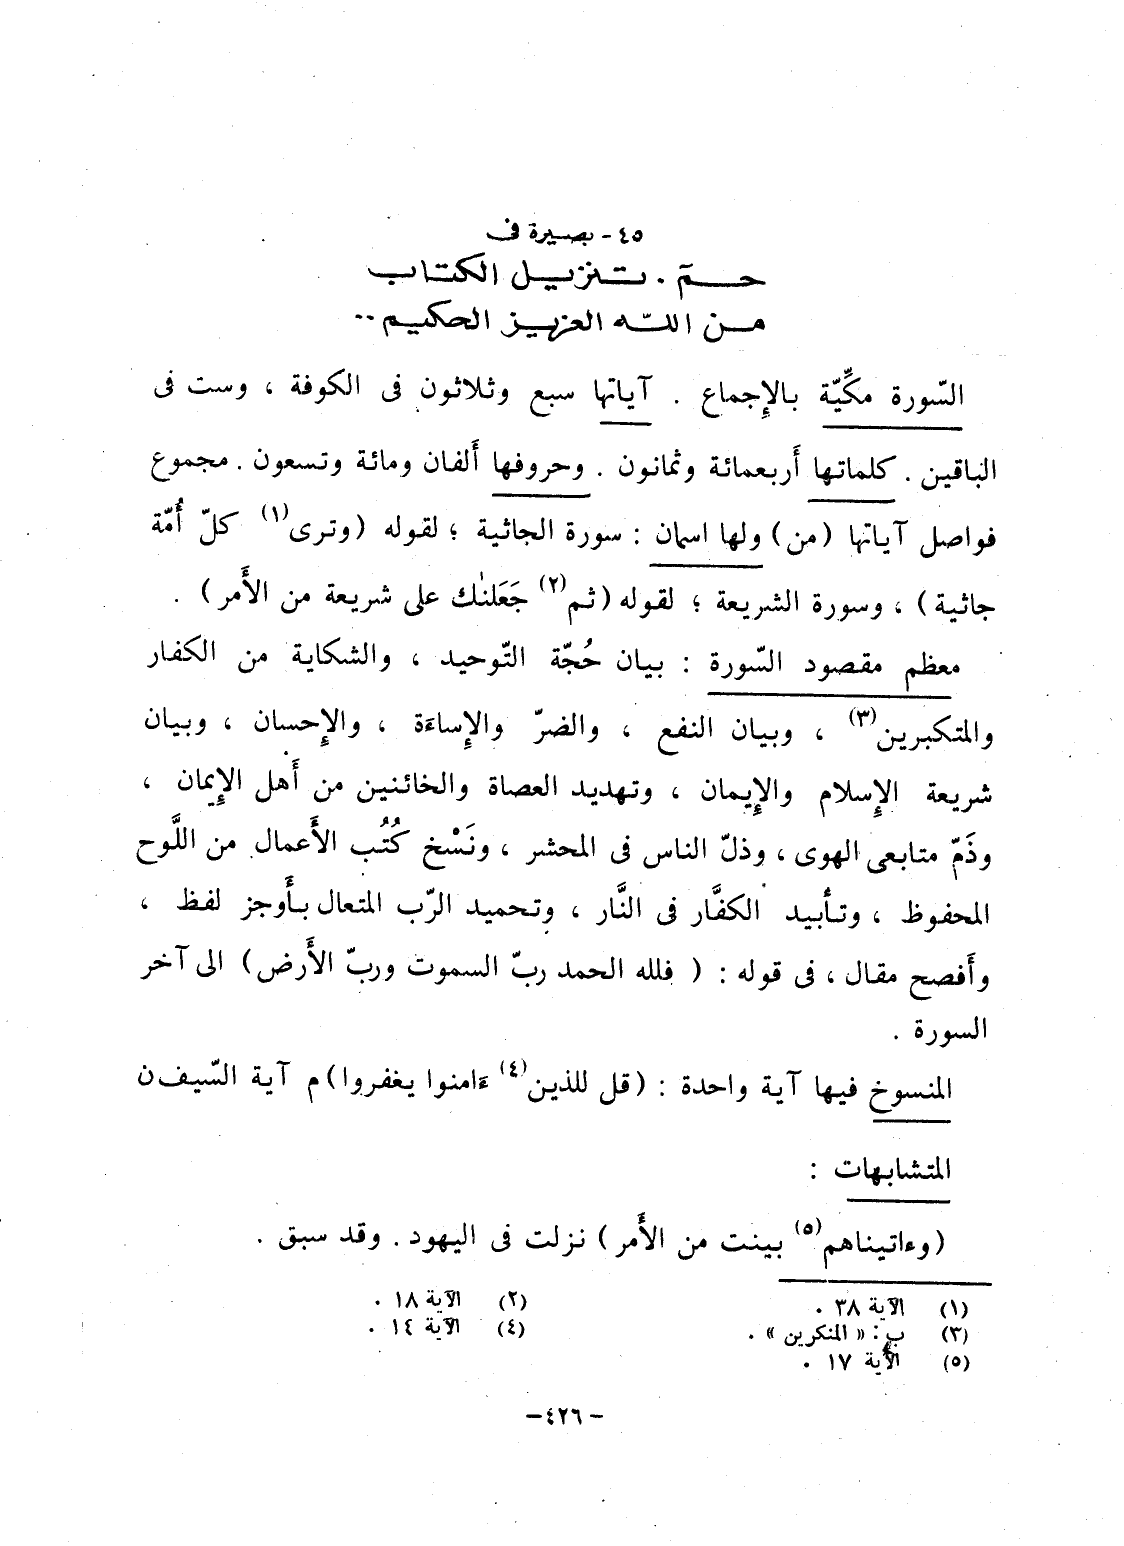 ٤٥ - بصيرة فى
حم . تنزيل الكتاب
من الله العزيز الحكيم ..
السّورة مكِّيّة بالإِجماع . آياتها سبع وثلاثون فى الكوفة ، وست فى
الباقين . كلماتها أَربعمائة وثمانون . وحروفها أَلفان ومائة وتسعون . مجموع
فواصل آياتها (من) ولها اسمان : سورة الجاثية ؛ لقوله (وترى(١) كلّ أُمّة
جاثية) ، وسورة الشريعة ؛ لقوله (ثم(٢) جَعَلنٰك على شريعة من الأَمر) .
معظم مقصود السّورة : بيان حُجّة التّوحيد ، والشكاية من الكفار
والمتكبرين(٣) ، وبيان النفع ، والضرّ والإِساءَة ، والإِحسان ، وبيان
شريعة الإِسلام والإِيمان ، وتهديد العصاة والخائنين من أَهل الإِيمان ،
وذَمّ متابعى الهوى ، وذلّ الناس فى المحشر ، ونَسْخ كُتُب الأَعمال من اللَّوح
المحفوظ ، وتأبيد الكفَّار فى النَّار ، وتحميد الرّب المتعال بأَوجز لفظ ،
وأَفصح مقال ، فى قوله : ( فلله الحمد ربّ السموت وربّ الأَرض) الى آخر
السورة .
المنسوخ فيها آية واحدة : (قل للذين(٤) ءامنوا يغفروا) م آية السّيف ن
المتشابهات :
(وءاتيناهم(٥) بينت من الأَمر) نزلت فى اليهود . وقد سبق .
(١) الآية ٣٨ . (٢) الآية ١٨ .
(٣) ب : « المنكرين » . (٤) الآية ١٤ .
(٥) الآية ١٧ .
-٤٢٦-